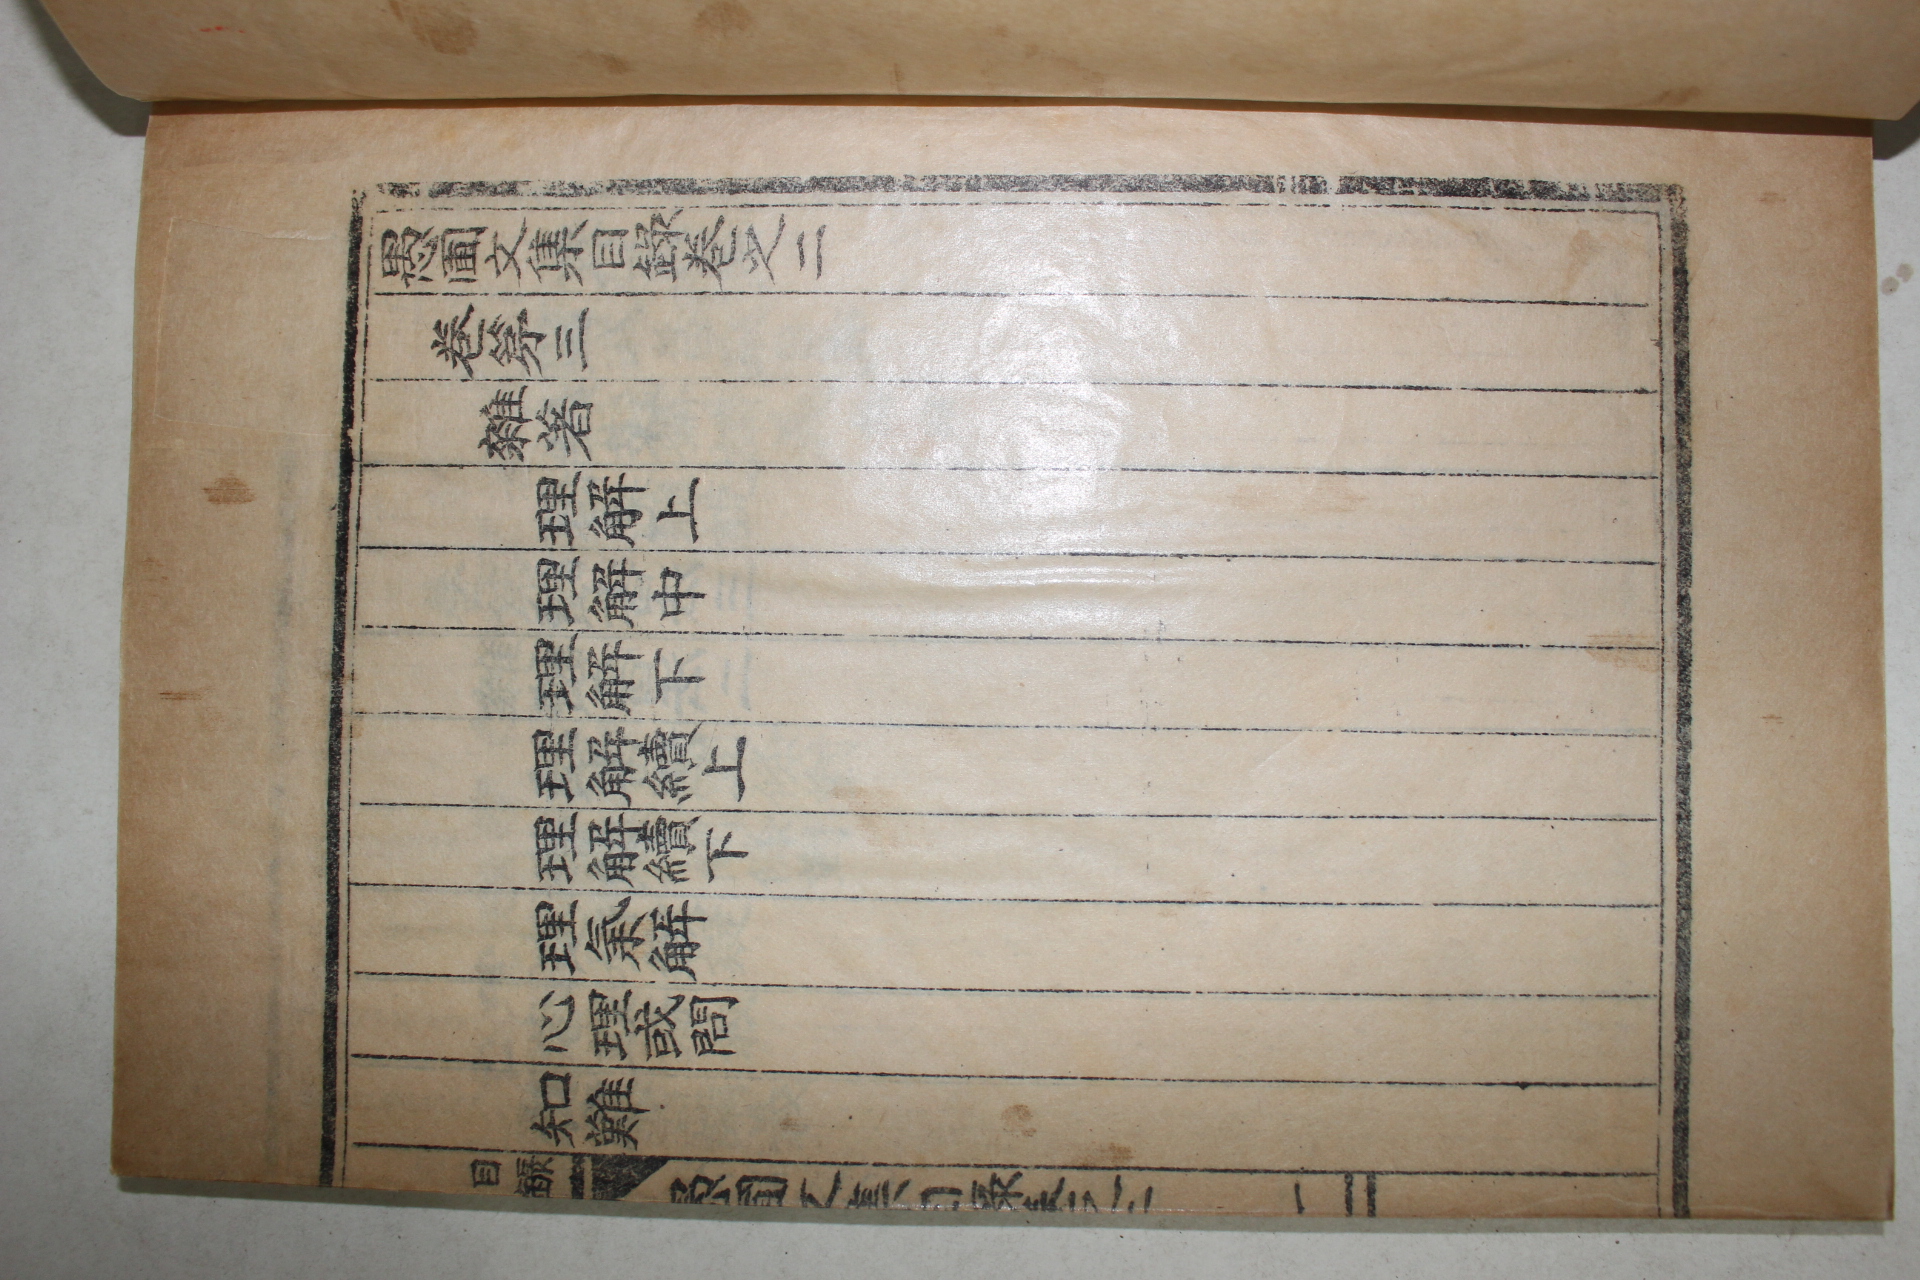 愚圃文集目錄卷之二
卷第三
雜著
理解上
理解中
理解下
理解續上
理解續下
理氣解
心理或問
知難
目錄
愚圃文集目錄卷之二
一